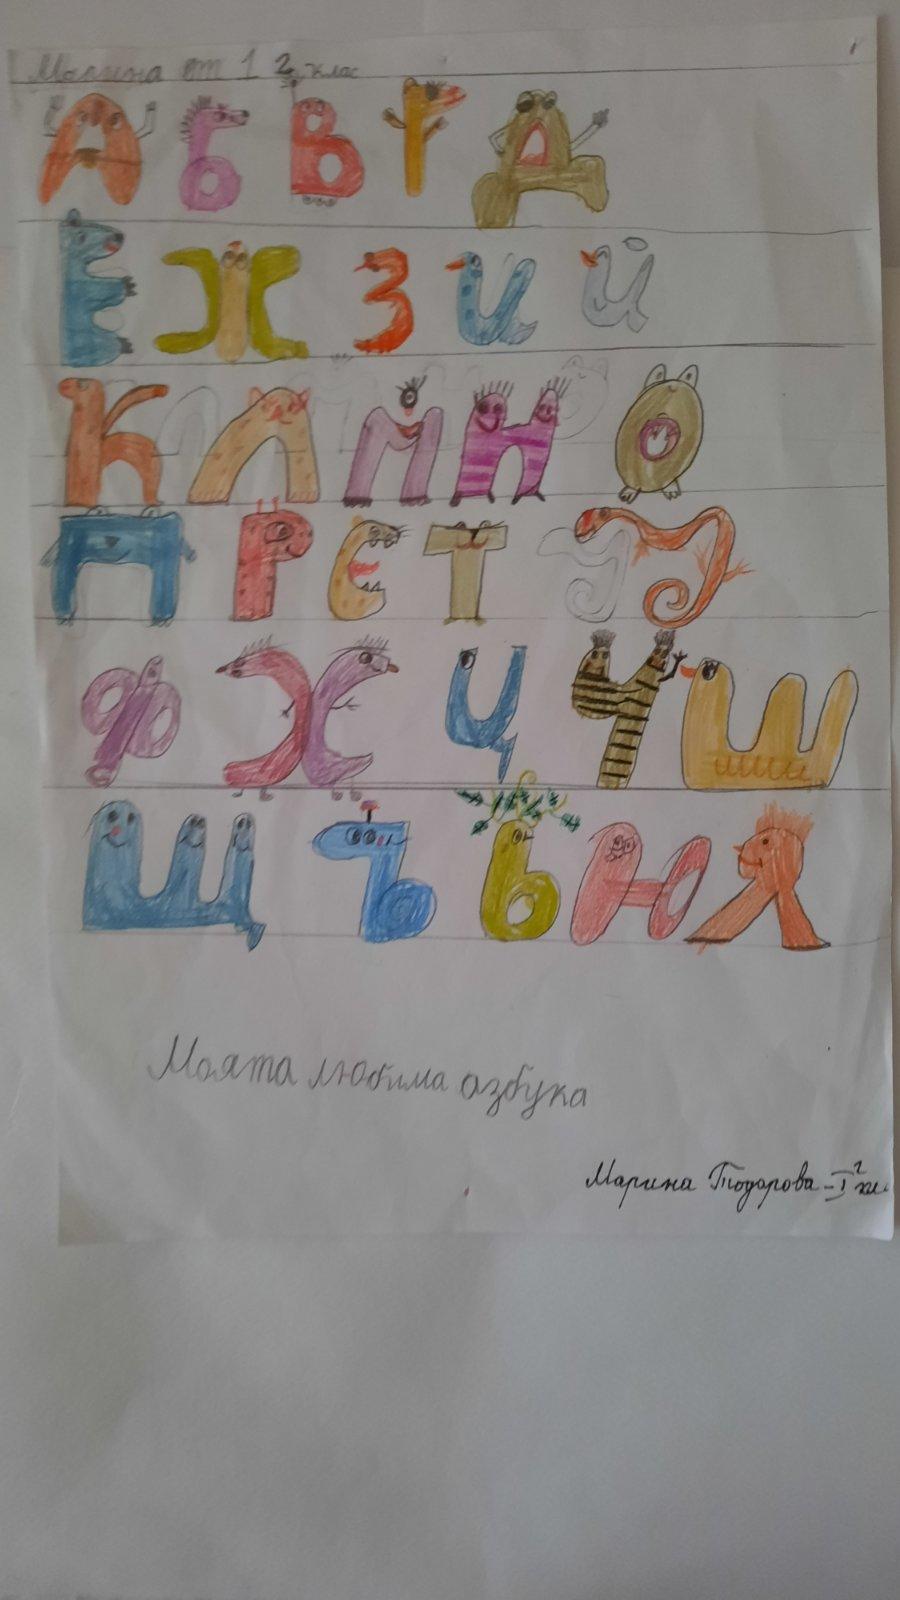 Марина от 1 2 клас
А Б В Г Д
Е Ж З И Й
К Л М Н О
П Р С Т У
Ф Х Ц Ч Ш
Щ Ъ Ь Ю Я
Моята любима азбука
Марина Тодорова - I 2 кл.